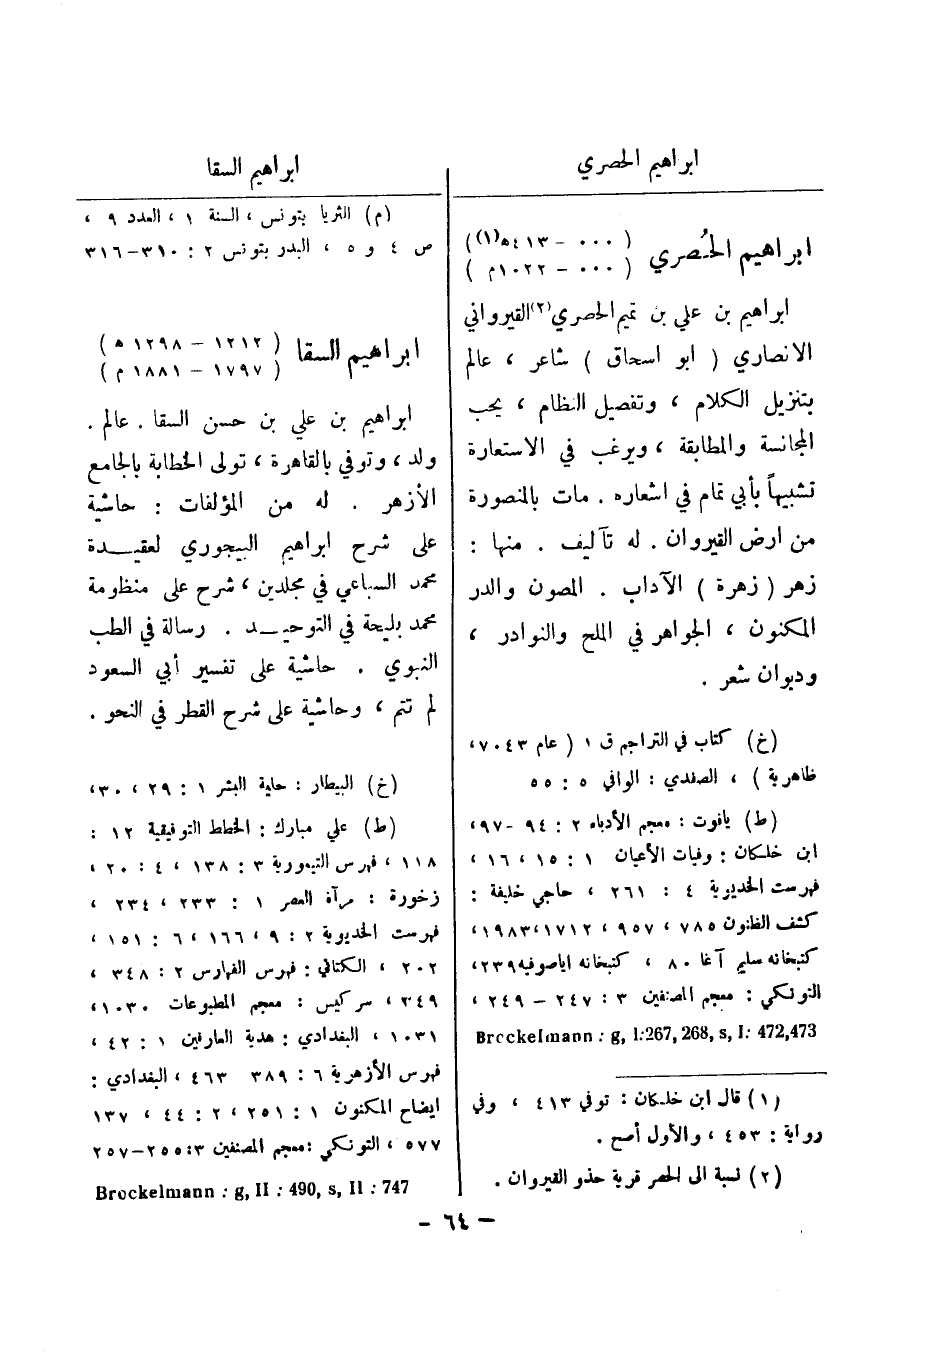 ابراهيم الحصري
ابراهيم الحُصري ( ٠٠٠ - ٤١٣ه(١))
( ٠٠٠ - ١٠٢٢م )
ابراهيم بن علي بن تميم الحصري(٢) القيرواني
الانصاري ( ابو اسحاق ) شاعر ، عالم
بتنزيل الكلام ، وتفصيل النظام ، يحب
المجانسة والمطابقة ، ويرغب في الاستعارة
تشبيهاً بأبي تمام في اشعاره . مات بالمنصورة
من ارض القيروان . له تآليف . منها :
زهر ( زهرة ) الآداب . المصون والدر
المكنون ، الجواهر في الملح والنوادر ،
وديوان شعر .
(خ) كتاب في التراجم ق ١ ( عام ٧٠٤٣،
ظاهرية ) ، الصفدي : الوافي ٥ : ٥٥
(ط) ياقوت : معجم الأدباء ٢ : ٩٤ -٩٧،
ابن خلكان : وفيات الأعيان ١ : ١٥ ، ١٦ ،
فهرست الخديوية ٤ : ٢٦١ ، حاجي خليفة :
كشف الظنون ٧٨٥ ، ٩٥٧ ، ١٧١٢،١٩٨٣،
كتبخانه سليم آغا ٨٠ ، كتبخانه اياصوفيه ٢٣٩،
التونكي : معجم المصنفين ٣ : ٢٤٧ - ٢٤٩ ،
Brockelmann : g, I.: 267, 268, s, I.: 472,473
(١) قال ابن خلكان : توفي ٤١٣ ، وفي
رواية : ٤٥٣ ، والأول أصح .
(٢) نسبة الى الحصر قرية حذو القيروان .
ابراهيم السقا
(م) الثريا بتونس ، السنة ١ ، العدد ٩ ،
ص ٤ و ٥ ، البدر بتونس ٢ : ٣١٠-٣١٦
ابراهيم السقا ( ١٢١٢ - ١٢٩٨ ه )
( ١٧٩٧ - ١٨٨١ م )
ابراهيم بن علي بن حسن السقا . عالم .
ولد ، وتوفي بالقاهرة ، تولى الخطابة بالجامع
الأزهر . له من المؤلفات : حاشية
على شرح ابراهيم البيجوري لعقيدة
محمد السباعي في مجلدين ، شرح على منظومة
محمد بليحة في التوحيد . رسالة في الطب
النبوي . حاشية على تفسير أبي السعود
لم تتم ، وحاشية على شرح القطر في النحو .
(خ) البيطار : حلية البشر ١ : ٢٩ ، ٣٠،
(ط) علي مبارك : الخطط التوفيقية ١٢ :
١١٨ ، فهرس التيمورية ٣ : ١٣٨ ، ٤ : ٢٠ ،
زخورة : مرآة العصر ١ : ٢٣٣ ، ٢٣٤ ،
فهرست الخديوية ٢ : ٩ ، ١٦٦ ، ٦ : ١٥١ ،
٢٠٢ ، الكتاني : فهرس الفهارس ٢ : ٣٤٨ ،
٣٤٩ ، سركيس : معجم المطبوعات ١٠٣٠،
١٠٣١ ، البغدادي : هدية العارفين ١ : ٤٢ ،
فهرس الأزهرية ٦ : ٣٨٩ ٤٦٣ ، البغدادي :
ايضاح المكنون ١ : ٢٥١ ، ٢ : ٤٤ ، ١٣٧
٥٧٧ ، التونكي : معجم المصنفين ٣ : ٢٥٥-٢٥٧
Brockelmann : g, II : 490, s, II : 747
- ٦٤ -